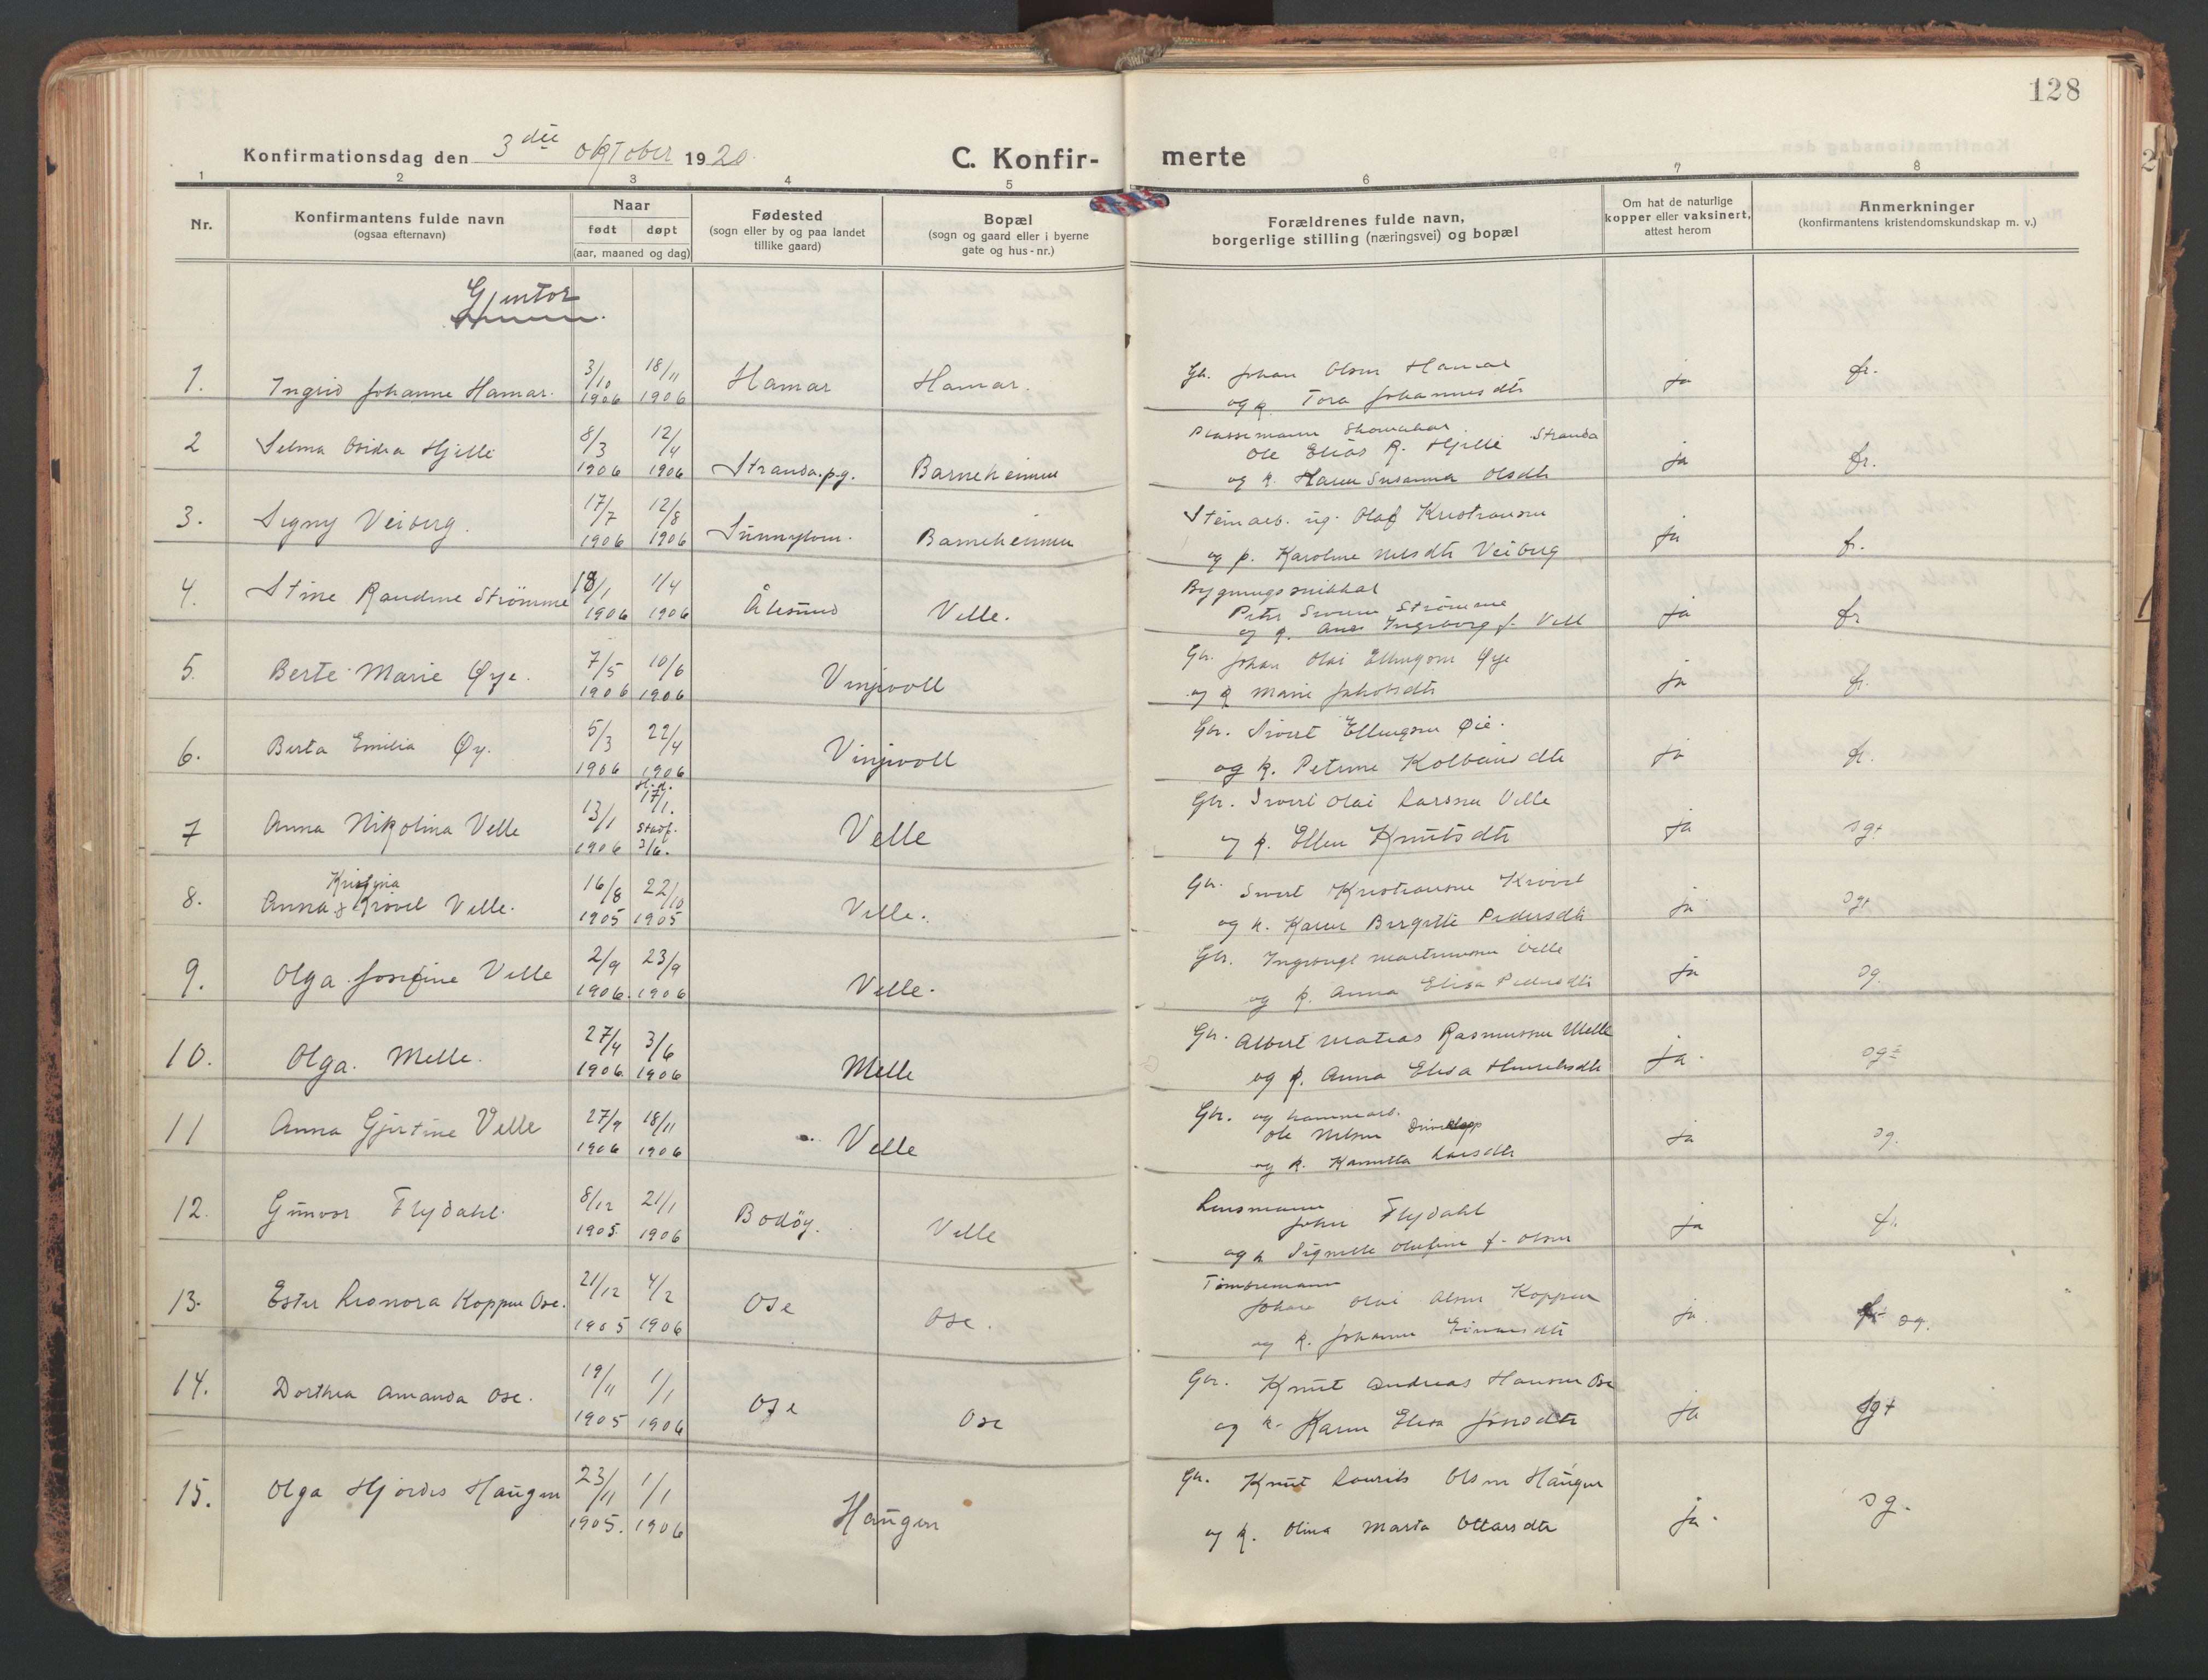 128
Konfirmationsdag den 3 die oktober 1920
C. Konfir- merte
1 2 3 4 5 6 7 8
Nr.
Konfirmantens fulde navn
(ogsaa efternavn)
Naar
født døpt
(aar, maaned og dag)
Fødested
(sogn eller by og paa landet
tillike gaard)
Bopæl
(sogn og gaard eller i byerne
gate og hus-nr.)
Forældrenes fulde navn,
borgerlige stilling (næringsvei) og bopæl
Om hat de naturlige
kopper eller vaksinert,
attest herom
Anmerkninger
(konfirmantens kristendomskundskap m. v.)
Gjentor
1. Ingrid Johanne Hamar. 3/10 1906 18/11 1906 Hamar Hamar. Gbr. Johan Olsen Hamar
og k. Tora Johannesdtr ja fr.
2 Selma Osidra Hjelle 8/3 1906 12/4 1906 Stranda pg. Barneheimen Ole Elias R. Hjelle Stranda
og k. Karen Susanna Olsdtr ja fr.
3. Signy Veiberg. 17/7 1906 12/8 1906 Sunnylven. Barneheimen Steinarb. ug. Olaf Kristiansen
og p. Karoline Nilsdtr Veiberg ja fr.
4. Stine Raudine Strömme 18/1 1906 1/4 1906 Ålesund Velle. Bygningssnikkar
Peter Sivern Strömme
og k. Ane Ingeborg f. Velle ja fr
5. Berte Marie Øye. 7/5 1906 10/6 1906 Vinjevoll Gbr. Johan Olai Ellingsen Øye
og k Marie Jakobsdtr ja fr.
6. Berta Emilia Øy. 5/3 1906 22/4 1906 Vinjevoll Gbr. Sivert Ellingsen Øie.
og k. Petrine Kolbeinsdtr ja fr.
7 Anna Nikolina Velle 13/1 1906 H.d. 17/1. Stadf. 3/6. Velle Gbr. Sivert Olai Larsen Velle
og k. Ellen Knutsdtr ja sg+
8. Anna Kristina Krövel Velle. 16/8 1905 22/10 1905 Velle. Gbr. Sivert Kristiansen Krövel
og k. Karen Birgitte Pedersdtr ja sg+
9. Olga Josefine Velle 2/9 1906. 23/9 1906 Velle. Gbr. Ingebrigt Martinusen Velle
og k. Anna Elisa Pedersdtr ja sg.
10. Olga. Melle. 27/4 1906. 3/6 1906 Melle Gbr. Albert Matias Rasmussen Melle
og k. Anna Elisa Henriksdtr ja. sg÷
11 Anna Gjertine Velle 27/9 1906 18/11 1906 Velle Gbr. og hammarb.
Ole Nilsen Driveklepp
og k. Kanutta Larsdtr ja sg.
12. Gunvor Flydahl. 8/12 1905. 21/1 1906 Bodöy. Velle Lensmann
John Flydahl
og k Signelle Olufine f. Olsen ja fr.
13. Ester Leonora Koppen Ose. 21/12 1905 4/2 1906 Ose Ose. Tömmermann
Johan Olai Olsen Koppen
og k. Johanne Einarsdtr ja. sg.
14. Dorthea Amanda Ose. 19/11 1905 1/1 1906 Ose Ose Gbr. Knut Andreas Hansen Ose
og k. Karen Elisa Jonsdtr ja sg+
15. Olga Hjördis Haugen 23/11 1905. 1/1 1906 Haugen Gbr. Knut Laurits Olsen Haugen
og k. Olina Marta Ottarsdtr ja. sg.